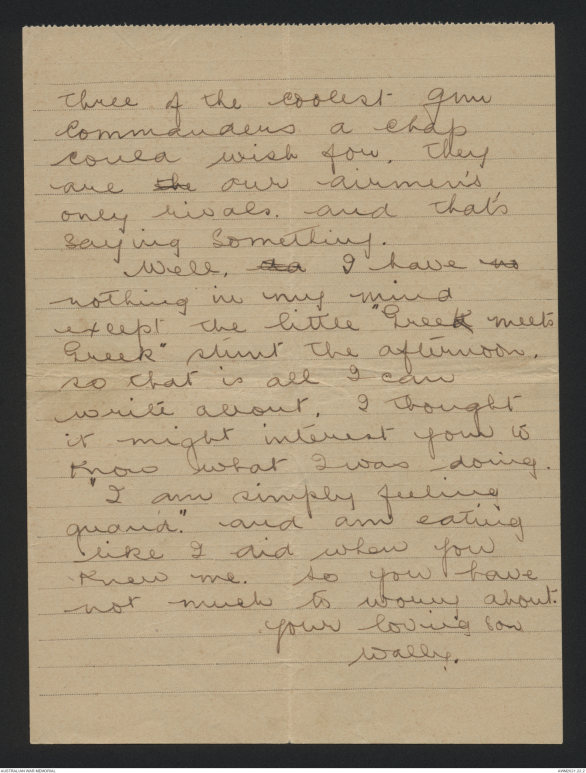 three of the coolest gun
Commanders a chap
could wish for. They
are the our airmen's
only rivals. and that's
saying something.
Well, da I have no
nothing in my mind
except the little "Greek meets
Greek" stunt the afternoon,
so that is all I can
write about, I thought
it might interest you to
know what I was doing.
"I am simply feeling
quand." and am eating
like I did when you
knew me. so you have
not much to worry about.
your loving son
Wally.
AUSTRALIAN WAR MEMORIAL